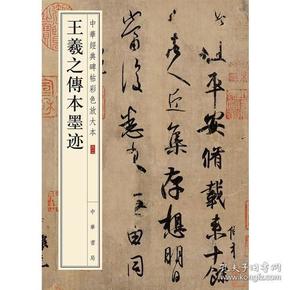 中華經典碑帖彩色放大本
王羲之傳本墨迹
中華書局
平安脩載来十餘
諸人近集存想明日
當復悉来無由同
孔夫子旧书网